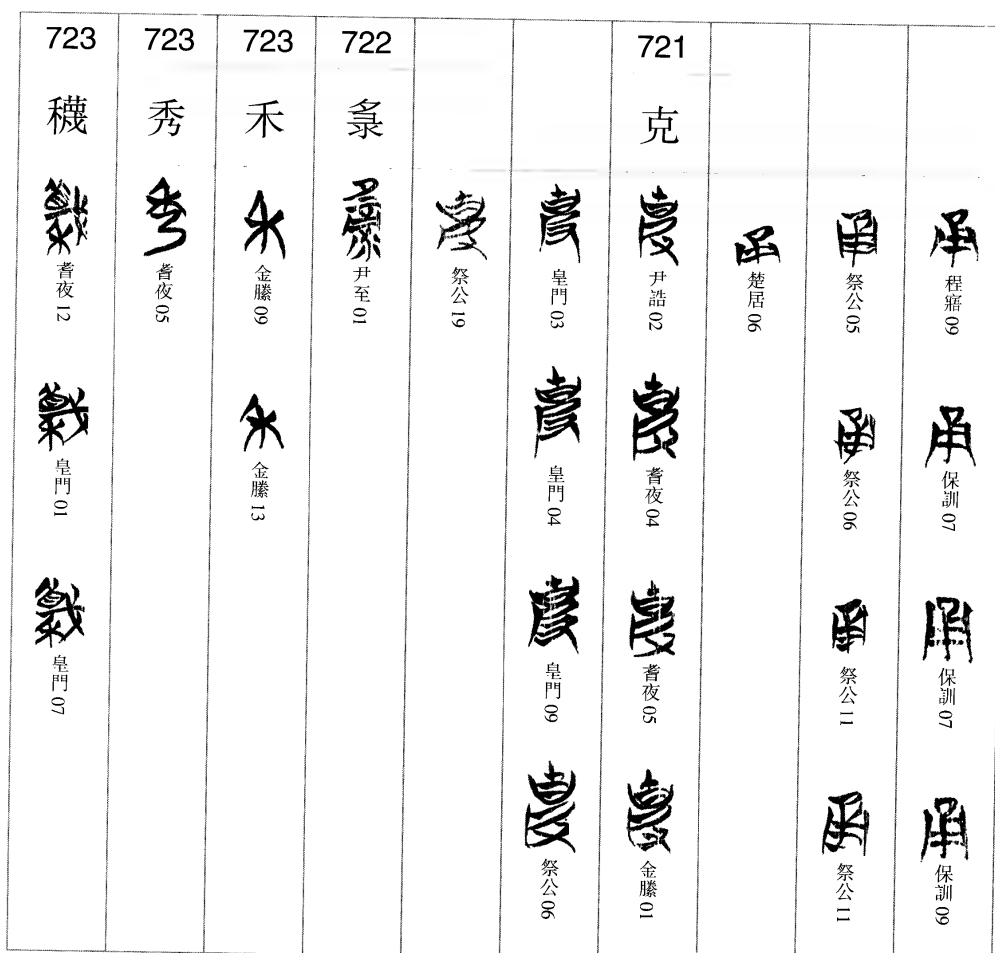 程寤 09
保訓 07
保訓 07
保訓 09
祭公 05
祭公 06
祭公 11
祭公 11
楚居 06
721
克
尹誥 02
耆夜 04
耆夜 05
金縢 01
皇門 03
皇門 04
皇門 09
祭公 06
祭公 19
722
彔
尹至 01
723
禾
金縢 09
金縢 13
723
秀
耆夜 05
723
穖
耆夜 12
皇門 01
皇門 07